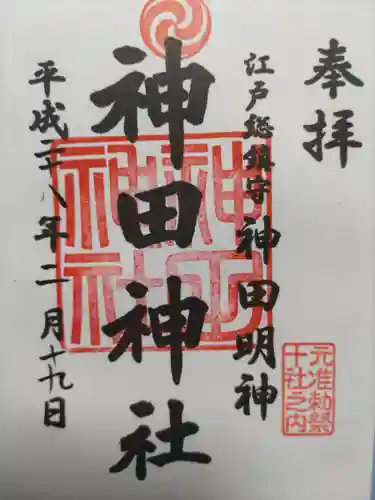 奉拝
江戸総鎮守 神田明神
神田神社
平成二八年二月十九日
神田神社
元准勅祭
十社之内